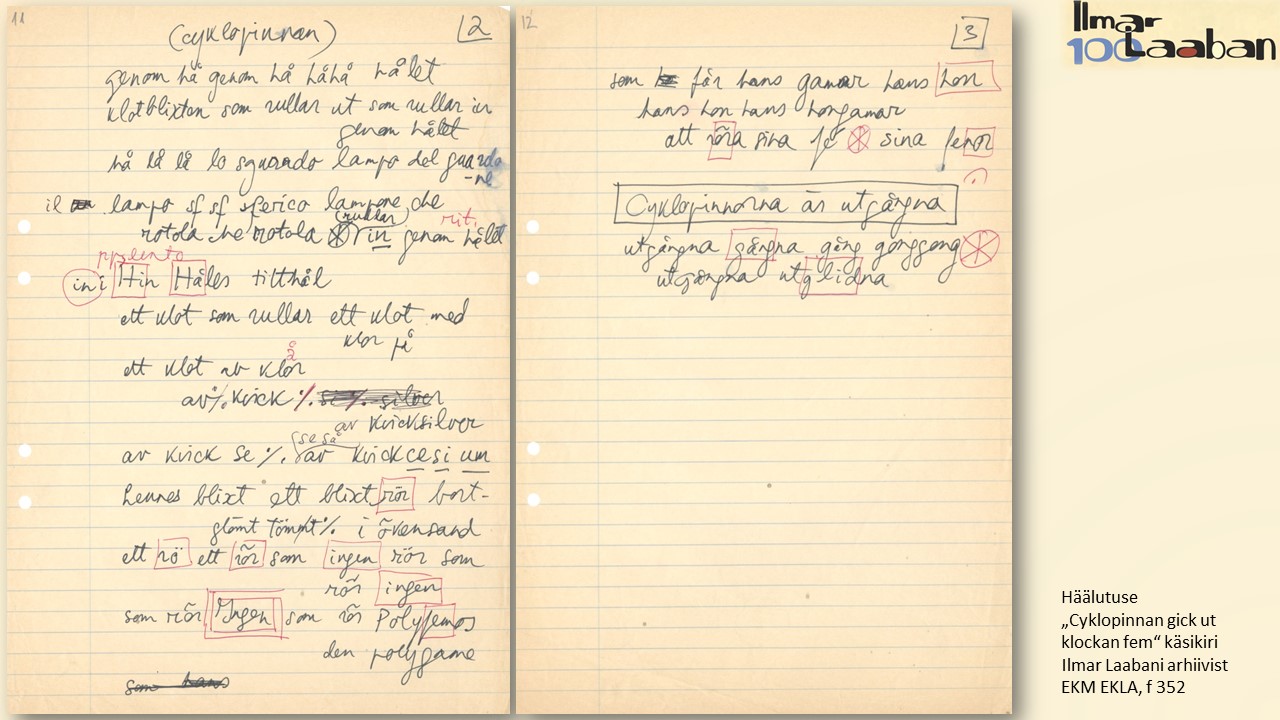 11
(cyklopinnan)
2
genom hå genom hå håhå hålet
klotblixten som rullar ut som rullar in
genom hålet
hå lå lå lo sguardo lampo del guardo
-ne
il lampo sf sf sferico lampone che
(rullar)
rit.
rotola che rotola in genom hålet
ppp lento
in i Hin Håles titthål
ett klot som rullar ett klot med
klor på
å
ett klot av klor
av ·/. kvick ·/.
av kvicksilver
se så
av kvick se ·/. av kvickcesium
hennes blixt ett blixtrör bort-
glömt tömt ·/. i övensand
ett rö ett rör som ingen rör som
rör ingen
som rör Ingen som rör Polyfemos
den polygame
som hans
12
3
som får hans gamar hans hon
hans hon hans hongamar
att röra sina fe sina fenor
Cyklopinnorna är utgångna
utgångna gångna gång gonggong
utgångna utglidna
Ilmar
100 Laaban
Häälutuse
„Cyklopinnan gick ut
klockan fem“ käsikiri
Ilmar Laabani arhiivist
EKM EKLA, f 352